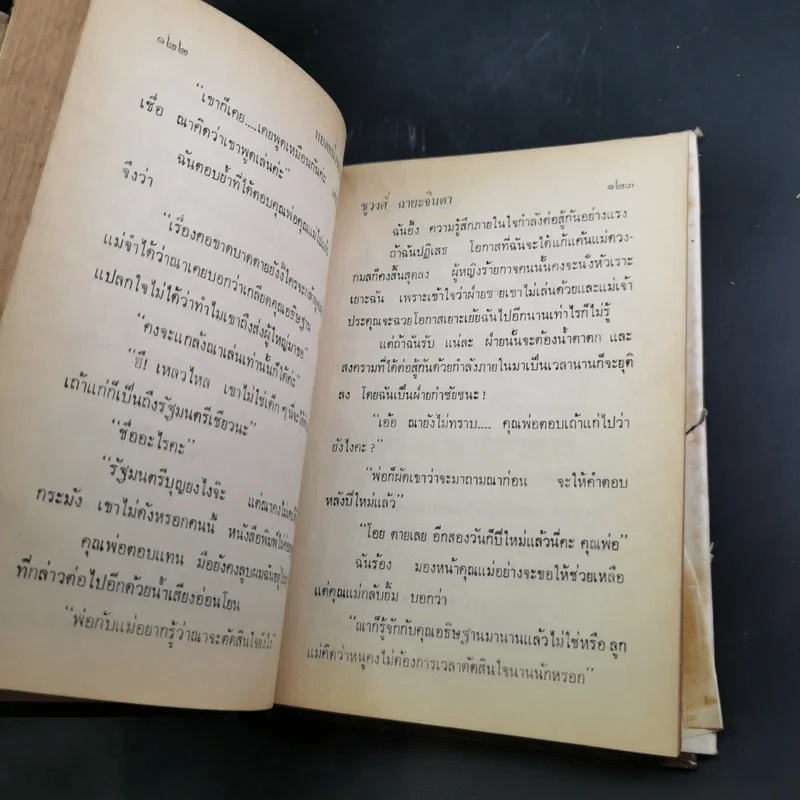 ๑๒๒
“เขาก็เคย....เคยพูดเหมือนกันค่ะ
เชื่อ ณาคิดว่าเขาพูดเล่นค่ะ”
ฉันตอบย้ำที่ได้ตอบคุณพ่อคุณแม่ไปแล้ว
จึงว่า
“เรื่องคอขาดบาดตายยังงี้ใครจะกล้า
แม่จำได้ว่าณาเคยบอกว่าเกลียดคุณอธิษฐาน
แปลกใจไม่ได้ว่าทำไมเขาถึงส่งผู้ใหญ่มาขอ”
“คงจะแกล้งณาเล่นเท่านั้นก็ได้ค่ะ”
“ฮึ! เหลวไหล เขาไม่ใช่เด็ก ๆ นี่จะได้
เถ้าแก่ก็เป็นถึงรัฐมนตรีเชียวนะ”
“ชื่ออะไรคะ”
“รัฐมนตรีบุญยงไงจ๊ะ แต่ณาคงไม่
กระมัง เขาไม่ดังหรอกคนนี้ หนังสือพิมพ์ไม่ค่อย
คุณพ่อตอบแทน มือยังคงลูบผมฉันอยู่
ที่กล่าวต่อไปอีกด้วยน้ำเสียงอ่อนโยน
“พ่อกับแม่อยากรู้ว่าณาจะตัดสินใจยังไง”
ชูวงศ์ ฉายะจินดา ๑๒๓
ฉันอึ้ง ความรู้สึกภายในใจกำลังต่อสู้กันอย่างแรง
ถ้าฉันปฏิเสธ โอกาสที่ฉันจะได้แก้แค้นแม่ดวง-
กมลก็คงสิ้นสุดลง ผู้หญิงร้ายกาจคนนั้นคงจะนั่งหัวเราะ
เยาะฉัน เพราะเข้าใจว่าฝ่ายชายเขาไม่เล่นด้วยและแม่เจ้า
ประคุณจะฉวยโอกาสเยาะเย้ยฉันไปอีกนานเท่าไรก็ไม่รู้
แต่ถ้าฉันรับ แน่ละ ฝ่ายนั้นจะต้องน้ำตาตก และ
สงครามที่ได้ต่อสู้กันด้วยกำลังภายในมาเป็นเวลานานก็จะยุติ
ลง โดยฉันเป็นฝ่ายกำชัยชนะ !
“เอ้อ ณายังไม่ทราบ.... คุณพ่อตอบเถ้าแก่ไปว่า
ยังไงคะ ?”
“พ่อก็ผัดเขาว่าจะมาถามณาก่อน จะให้คำตอบ
หลังปีใหม่แล้ว”
“โอย ตายเลย อีกสองวันก็ปีใหม่แล้วนี่คะ คุณพ่อ”
ฉันร้อง มองหน้าคุณแม่อย่างจะขอให้ช่วยเหลือ
แต่คุณแม่กลับยิ้ม บอกว่า
“ณาก็รู้จักกับคุณอธิษฐานมานานแล้วไม่ใช่หรือ ลูก
แม่คิดว่าหนูคงไม่ต้องการเวลาตัดสินใจนานนักหรอก”